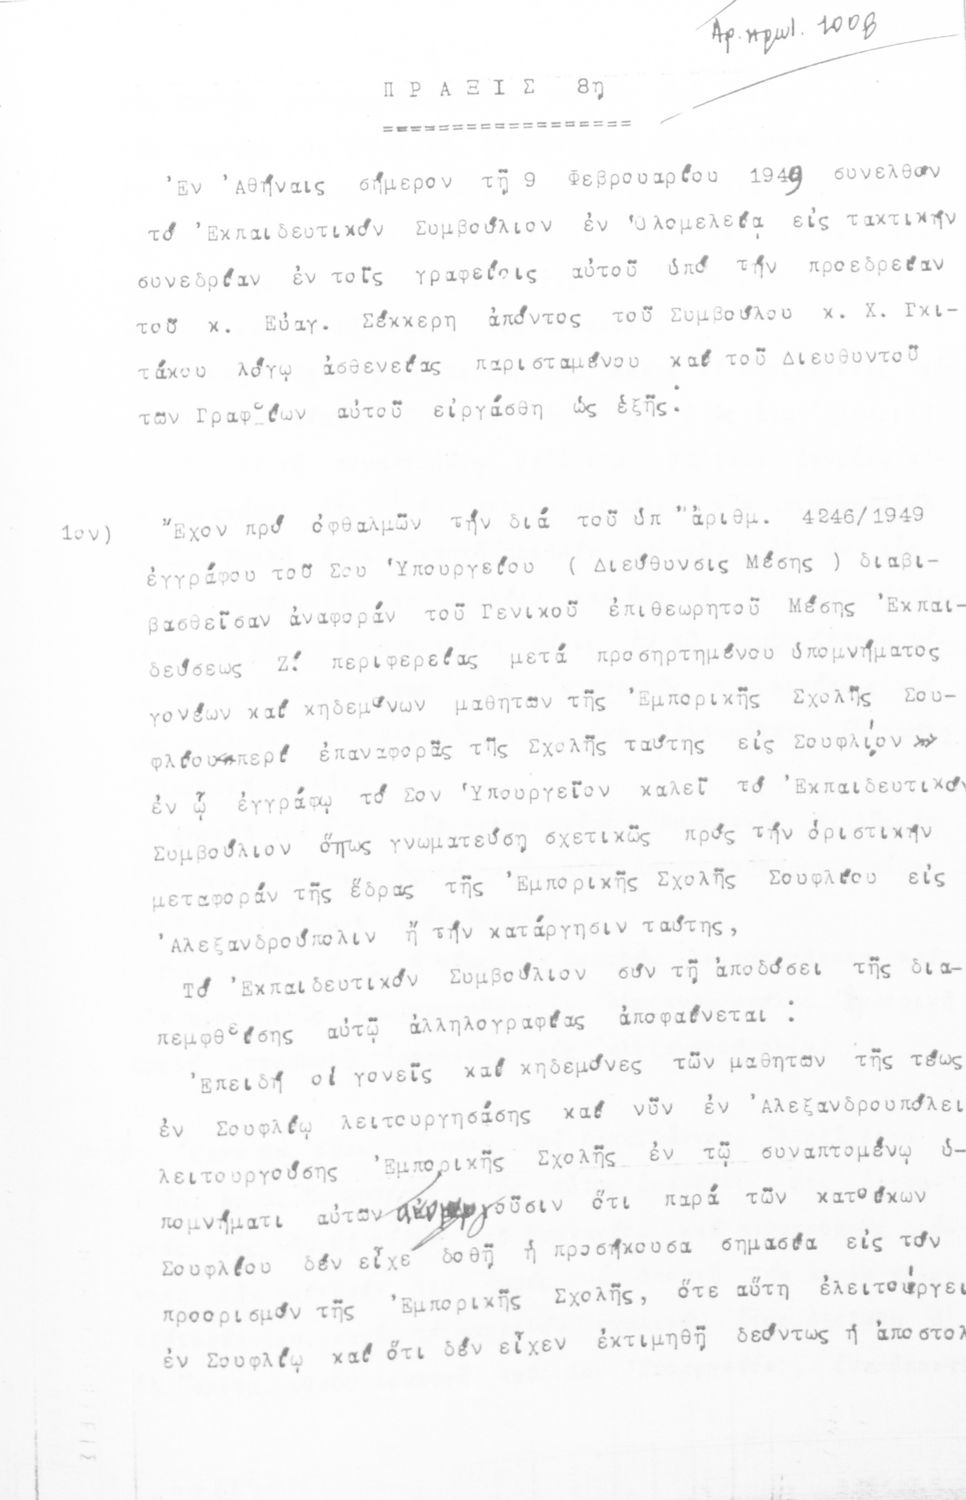 Αρ. πρωτ. 1008
ΠΡΑΞΙΣ 8η
==================
Ἐν Ἀθήναις σήμερον τῇ 9 Φεβρουαρίου 1949 συνελθόν
τό Ἐκπαιδευτικόν Συμβούλιον ἐν Ὁλομελείᾳ εἰς τακτικήν
συνεδρίαν ἐν τοῖς γραφείοις αὐτοῦ ὑπό τήν προεδρείαν
τοῦ κ. Εὐαγ. Σέκκερη ἀπόντος τοῦ Συμβούλου κ. Χ. Γκι-
τάκου λόγῳ ἀσθενείας παρισταμένου καί τοῦ Διευθυντοῦ
τῶν Γραφείων αὐτοῦ εἰργάσθη ὡς ἑξῆς:
1ον) Ἔχον πρό ὀφθαλμῶν τήν διά τοῦ ὑπ' ἀριθμ. 4246/1949
ἐγγράφου τοῦ Σου Ὑπουργείου ( Διεύθυνσις Μέσης ) διαβι-
βασθεῖσαν ἀναφοράν τοῦ Γενικοῦ ἐπιθεωρητοῦ Μέσης Ἐκπαι-
δεύσεως Ζ! περιφερείας μετά προσηρτημένου ὑπομνήματος
γονέων καί κηδεμόνων μαθητῶν τῆς Ἐμπορικῆς Σχολῆς Σου-
φλίου "περί ἐπαναφορᾶς τῆς Σχολῆς ταύτης εἰς Σουφλίον"
ἐν ᾧ ἐγγράφῳ τό Σον Ὑπουργεῖον καλεῖ τό Ἐκπαιδευτικόν
Συμβούλιον ὅπως γνωματεύσῃ σχετικῶς πρός τήν ὁριστικήν
μεταφοράν τῆς ἕδρας τῆς Ἐμπορικῆς Σχολῆς Σουφλίου εἰς
Ἀλεξανδρούπολιν ἤ τήν κατάργησιν ταύτης,
Τό Ἐκπαιδευτικόν Συμβούλιον σύν τῇ ἀποδόσει τῆς δια-
πεμφθείσης αὐτῷ ἀλληλογραφίας ἀποφαίνεται :
Ἐπειδή οἱ γονεῖς καί κηδεμόνες τῶν μαθητῶν τῆς τέως
ἐν Σουφλίῳ λειτουργησάσης καί νῦν ἐν Ἀλεξανδρουπόλει
λειτουργούσης Ἐμπορικῆς Σχολῆς ἐν τῷ συναπτομένῳ ὑ-
πομνήματι αὐτῶν ὁμολογοῦσιν ὅτι παρά τῶν κατοίκων
Σουφλίου δέν εἶχε δοθῆ ἡ προσήκουσα σημασία εἰς τόν
προορισμόν τῆς Ἐμπορικῆς Σχολῆς, ὅτε αὕτη ἐλειτούργει
ἐν Σουφλίῳ καί ὅτι δέν εἶχεν ἐκτιμηθῆ δεόντως ἡ ἀποστολ